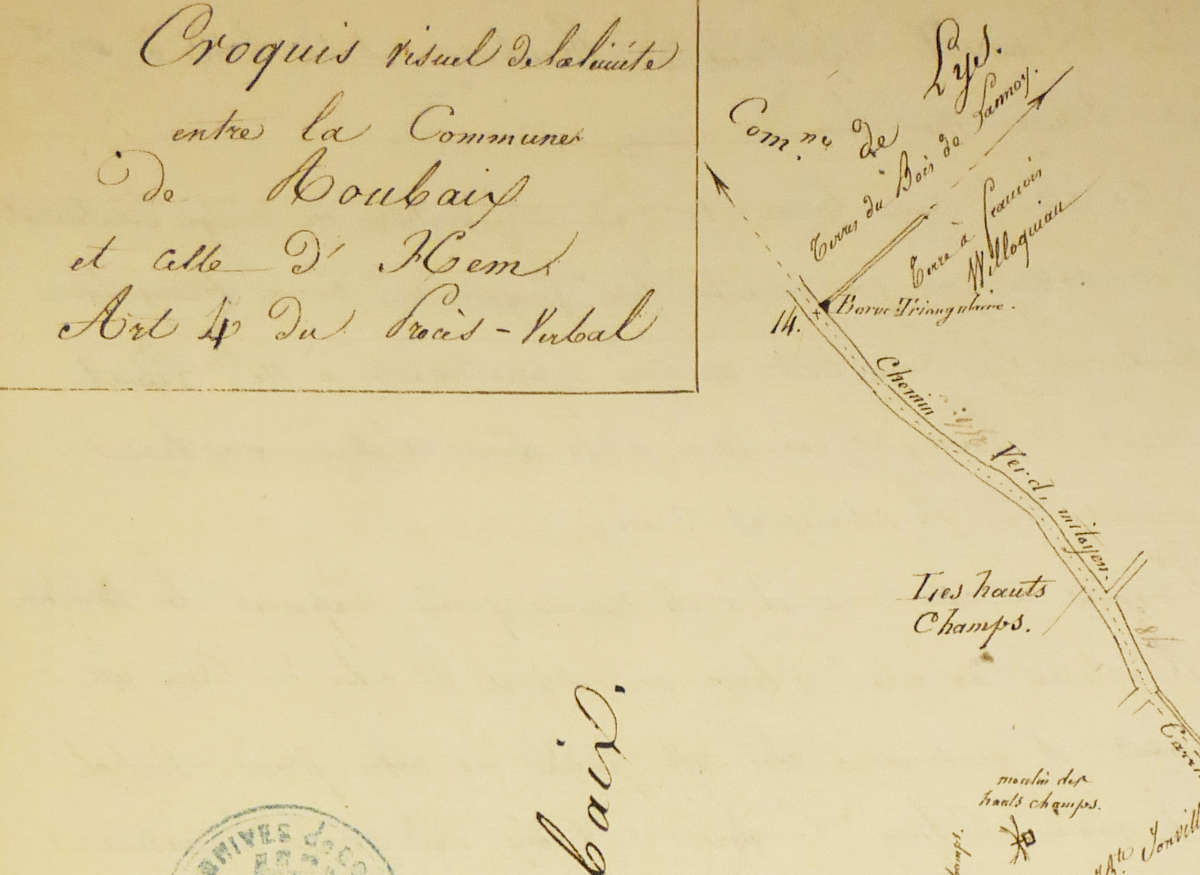 Croquis visuel de la limite
entre la Commune
de Roubaix
et celle d' Hem
Art 4 du Procès-Verbal
Com.ne de Lys.
Terres du Bois de Lannoy.
Terre à François
Willoquiau
14.
Borne Triangulaire.
Chemin Verd, mitoyen.
Les hauts
Champs.
baix.
moulin des
hauts champs.